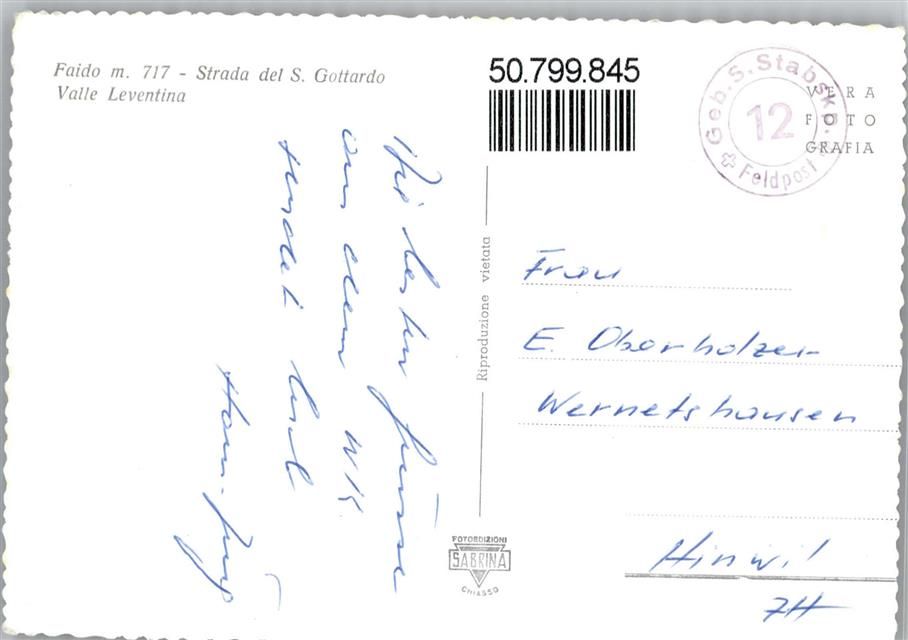 Faido m. 717 - Strada del S. Gottardo
Valle Leventina
50.799.845
Geb. S. Stabskp.
12
Feldpost
VERA
FOTO
GRAFIA
Die besten Grüsse
aus dem WK
sendet Euch
Hans-Jürg
Riproduzione vietata
Frau
E. Oberholzer
Wernetshausen
Hinwil
ZH
FOTOEDIZIONI
SABRINA
CHIASSO